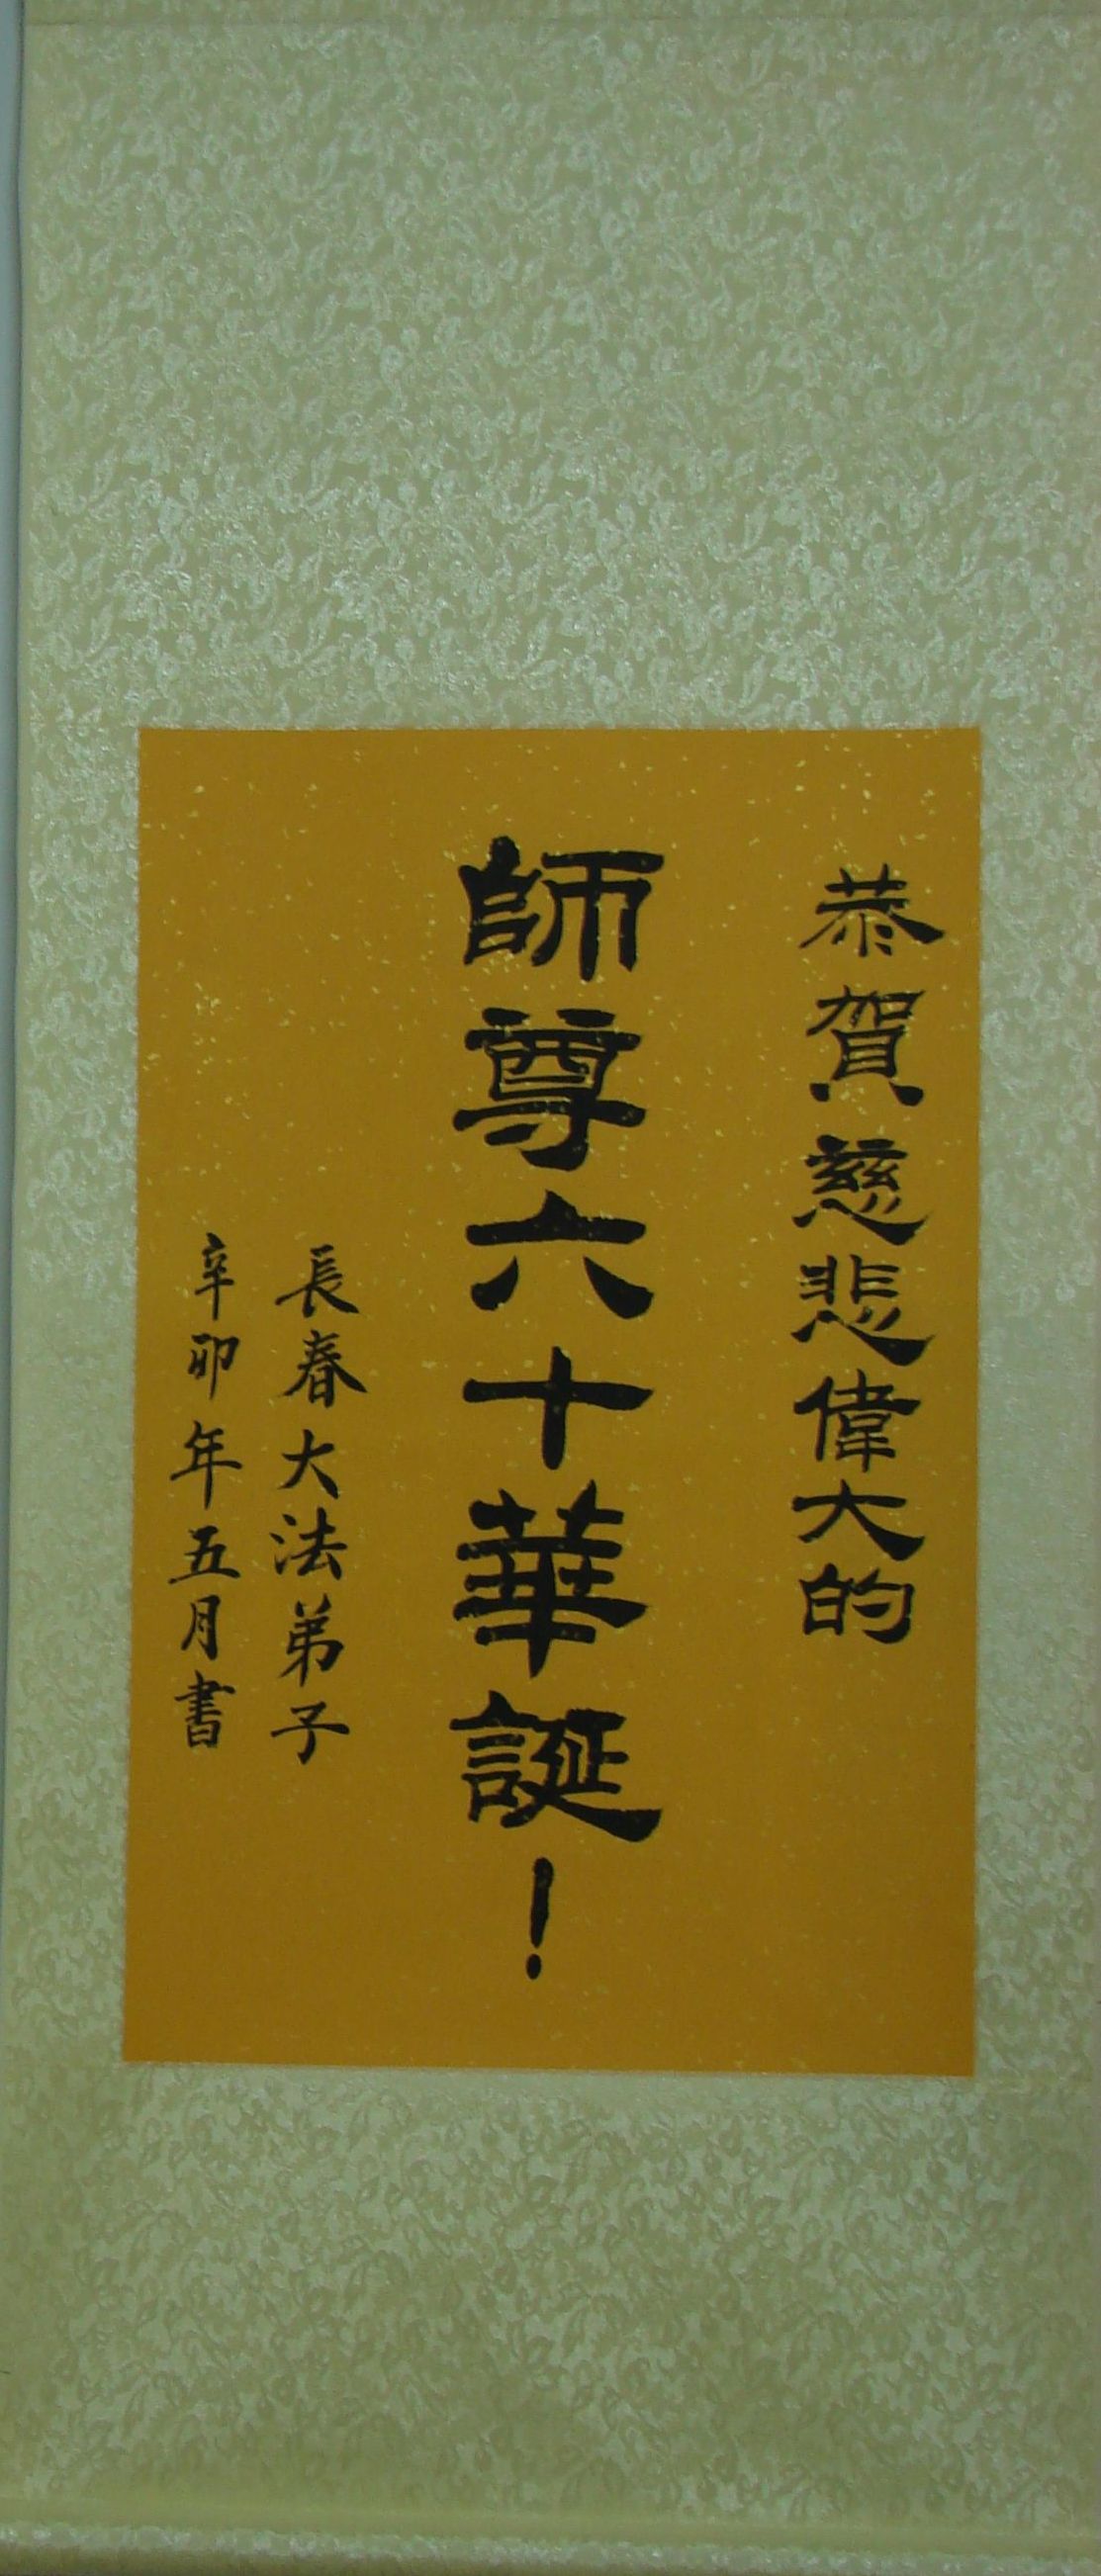 恭賀慈悲偉大的
師尊六十華誕！
長春大法弟子
辛卯年五月書